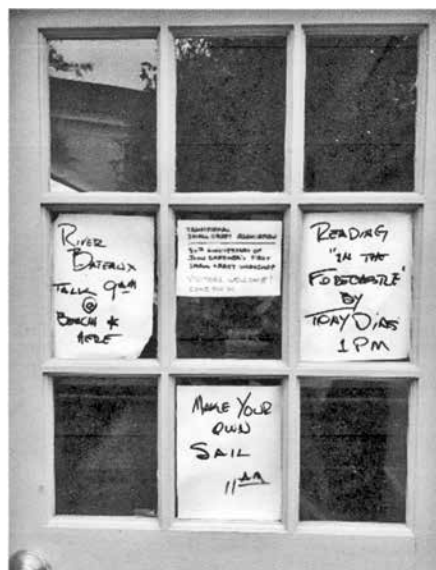 RIVER
BATEAUX
TALK 9AM
@
BEACH *
HERE
TRADITIONAL
SMALL CRAFT ASSOCIATION
ANNIVERSARY OF
JOHN GARDNER'S FIRST
SMALL CRAFT WORKSHOP
VISITORS WELCOME!
COME ON IN
READING
"IN THE
FORECASTLE"
BY
TONY DIAS
1 PM
MAKE YOUR
OWN
SAIL
11 AM